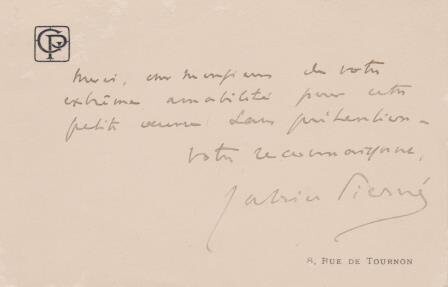 GP
Merci, cher Monsieur de votre
extrême amabilité pour cette
petite œuvre sans prétention –
votre reconnaissant,
Gabriel Pierné
8, RUE DE TOURNON